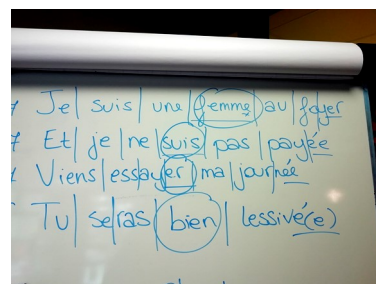 Je| suis| une |femme| au |foy|er
Et| je |ne |suis| pas |payée
Viens|essay|er| ma |journée
Tu| se|ras |bien| lessivé(e)